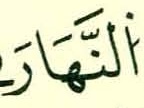 ٱلنَّهَارَ